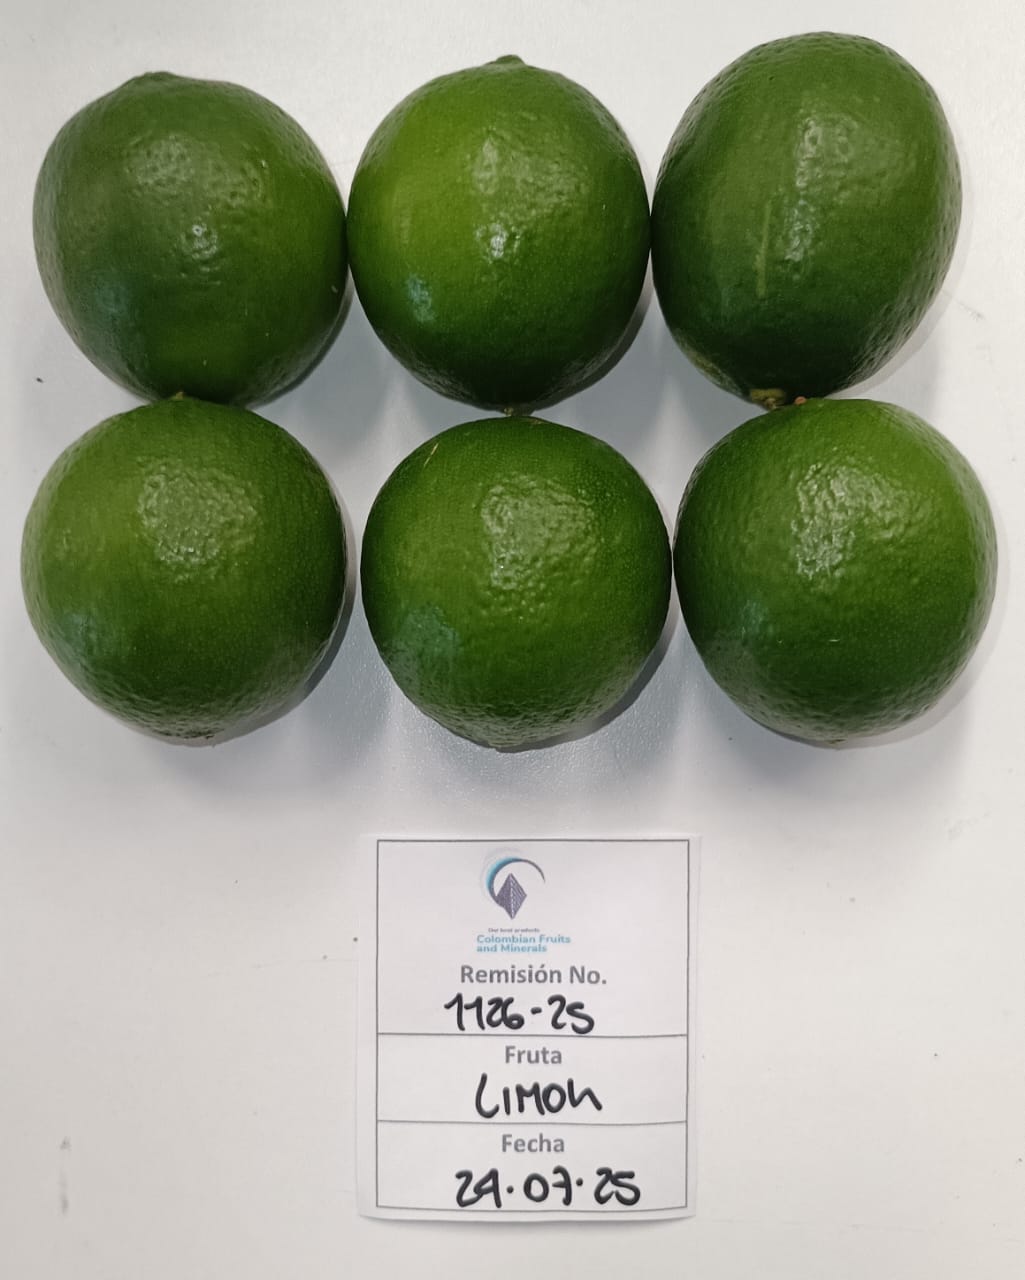 Our best products
Colombian Fruits
and Minerals
Remisión No.
1126-25
Fruta
LIMON
Fecha
24.07.25